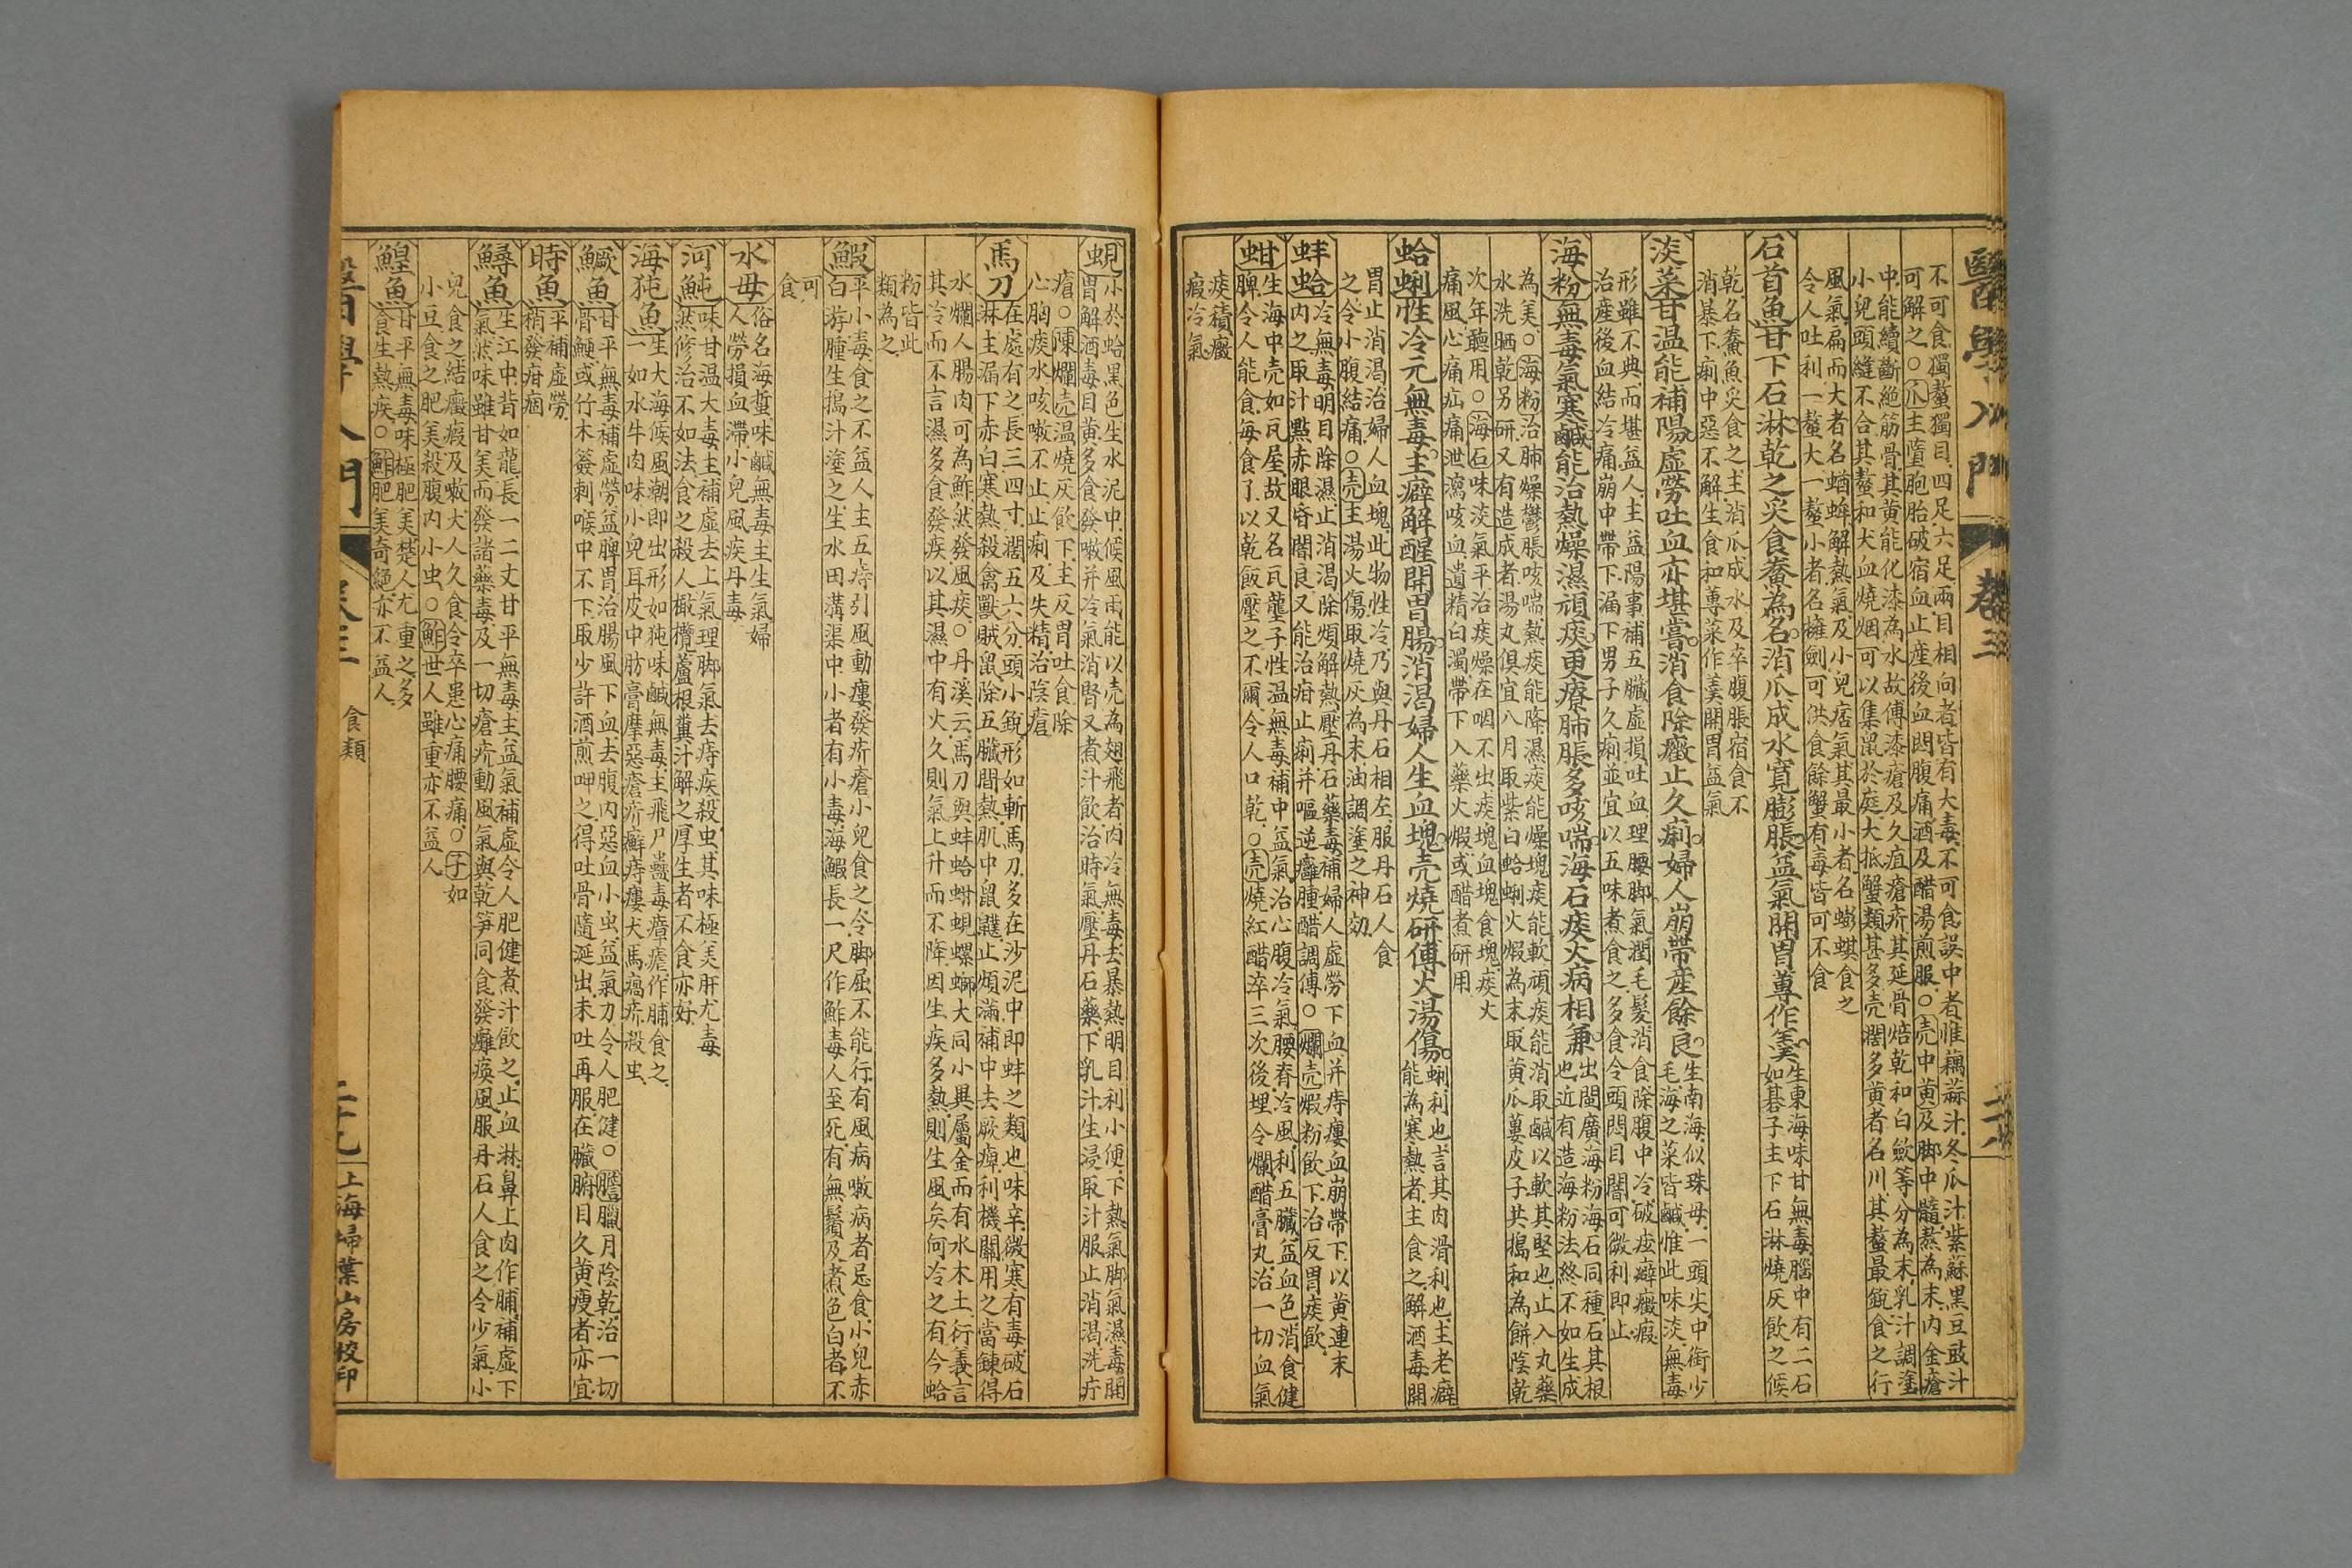 醫學入門 卷三
不可食獨螯獨目四足六足兩目相向者皆有大毒不可食誤中者惟藕蒜汁冬瓜汁紫蘇黑豆豉汁
可解之○爪主墮胞胎破宿血止產後血悶腹痛酒及醋湯煎服○壳中黃及脚中髓熬為末內金瘡
中能續斷絕筋骨其黃能化漆為水故傅漆瘡及久疽瘡疥其延骨焙乾和白歛等分為末乳汁調塗
小兒頭縫不合其螯和犬血燒烟可以集鼠於庭大抵蟹類甚多壳濶多黃者名川其螯最銳食之行
風氣扁而大者名蝤蛑解熱氣及小兒痞氣其最小者名蟛蜞食之
令人吐利一螯大一螯小者名擁劍可供食餘蟹有毒皆可不食
石首魚甘下石淋乾之炙食鯗為名消瓜成水寬膨脹益氣開胃蓴作羹
生東海味甘無毒腦中有二石
如碁子主下石淋燒灰飲之候
乾名鯗魚炙食之主消瓜成水及卒腹脹宿食不
消暴下痢中惡不解生食和蓴菜作羹開胃益氣
淡菜甘温能補陽虛勞吐血亦堪嘗消食除癥止久痢婦人崩帶産餘良
生南海似珠母一頭尖中銜少
毛海之菜皆鹹惟此味淡無毒
形雖不典而堪益人主益陽事補五臟虛損吐血理腰脚氣潤毛髮消食除腹中冷破痃癖癥瘕
治產後血結冷痛崩中帶下漏下男子久痢並宜以五味煮食之多食令頭悶目闇可微利即止
海粉無毒氣寒鹹能治熱燥濕頑痰更療肺脹多咳喘海石痰火病相兼
出閩廣海粉海石同種石其根
也近有造海粉法終不如生成
為美○海粉治肺燥鬱脹咳喘熱痰能降濕痰能燥塊痰能軟頑痰能消取鹹以軟其堅也止入丸藥
水洗晒乾另研又有造成者湯丸俱宜八月取紫白蛤蜊火煅為末取黃瓜蔞皮子共搗和為餅陰乾
次年聽用○海石味淡氣平治痰燥在咽不出痰塊血塊食塊痰火
痛風心痛疝痛泄瀉咳血遺精白濁帶下入藥火煅或醋煮研用
蛤蜊性冷元無毒主癖解酲開胃腸消渴婦人生血塊壳燒研傅火湯傷
蜊利也言其肉滑利也主老癖
能為寒熱者主食之解酒毒開
胃止消渴治婦人血塊此物性冷乃與丹石相左服丹石人食
之令小腹結痛○壳主湯火傷取燒灰為末油調塗之神効
蚌蛤冷無毒明目除濕止消渴除煩解熱壓丹石藥毒補婦人虛勞下血并痔瘻血崩帶下以黃連末
內之取汁點赤眼昏闇良又能治疳止痢并嘔逆癰腫醋調傅○爛壳煅粉飲下治反胃痰飲
蚶生海中壳如瓦屋故又名瓦蘢子性温無毒補中益氣治心腹冷氣腰脊冷風利五臟益血色消食健
脾令人能食每食了以乾飯壓之不爾令人口乾○壳燒紅醋淬三次後埋令爛醋膏丸治一切血氣
痰積癥
瘕冷氣
蜆小於蛤黑色生水泥中候風雨能以壳為翅飛者肉冷無毒去暴熱明目利小便下熱氣脚氣濕毒開
胃解酒毒目黃多食發嗽并冷氣消腎又煮汁飲治時氣壓丹石藥下乳汁生浸取汁服止消渴洗疔
瘡○陳爛壳温燒灰飲下主反胃吐食除
心胸痰水咳嗽不止止痢及失精治陰瘡
馬刀在處有之長三四寸濶五六分頭小銳形如斬馬刀多在沙泥中即蚌之類也味辛微寒有毒破石
淋主漏下赤白寒熱殺禽獸賊鼠除五臟間熱肌中鼠鼷止煩滿補中去厥痺利機關用之當鍊得
水爛人腸肉可為鮓然發風痰○丹溪云馬刀與蚌蛤蚶蜆螺螄大同小異屬金而有水木土衍義言
其冷而不言濕多食發疾以其濕中有火久則氣上升而不降因生痰多熱則生風矣何冷之有今蛤
粉皆此
類為之
鰕平小毒食之不益人主五痔引風動瘻發疥瘡小兒食之令脚屈不能行有風病嗽病者忌食小兒赤
白游腫生搗汁塗之生水田溝渠中小者有小毒海鰕長一尺作鮓毒人至死有無鬚及煮色白者不
可
食
水母俗名海蜇味鹹無毒主生氣婦
人勞損血滯小兒風疾丹毒
河魨味甘温大毒主補虛去上氣理脚氣去痔疾殺虫其味極美肝尤毒
然修治不如法食之殺人橄欖蘆根糞汁解之厚生者不食亦好
海㹠魚生大海候風潮即出形如㹠味鹹無毒主飛尸蠱毒瘴瘧作脯食之
一如水牛肉味小兒耳皮中肪膏摩惡瘡疥癬痔瘻犬馬瘑疥殺虫
鱖魚甘平無毒補虛勞益脾胃治腸風下血去腹內惡血小虫益氣力令人肥健○膽臘月陰乾治一切
骨鯁或竹木簽刺喉中不下取少許酒煎呷之得吐骨隨涎出未吐再服在臟腑目久黃瘦者亦宜
時魚平補虛勞
稍發疳痼
鱘魚生江中背如龍長一二丈甘平無毒主益氣補虛令人肥健煮汁飲之止血淋鼻上肉作脯補虛下
氣然味雖甘美而發諸藥毒及一切瘡疥動風氣與乾笋同食發癱瘓風服丹石人食之令少氣小
兒食之結癥瘕及嗽大人久食令卒患心痛腰痛○子如
小豆食之肥美殺腹內小虫○鮓世人雖重亦不益人
鰉魚甘平無毒味極肥美楚人尤重之多
食生熱疾○鮓肥美奇絕亦不益人
醫學入門 卷三 食類 二十九 上海掃葉山房校印